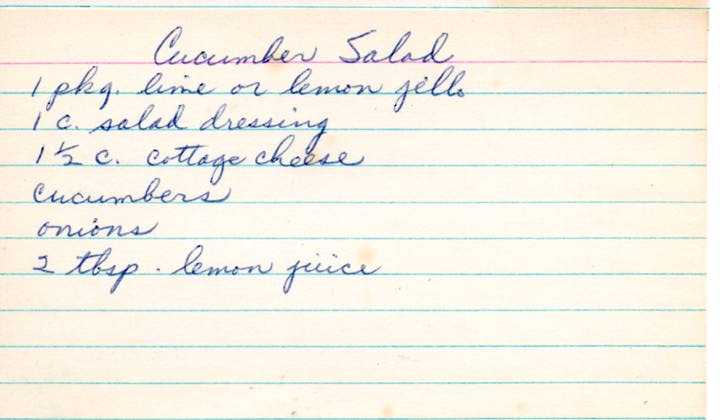 Cucumber Salad
1 pkg. lime or lemon jello
1 c. salad dressing
1 1/2 c. cottage cheese
cucumbers
onions
2 tbsp. lemon juice